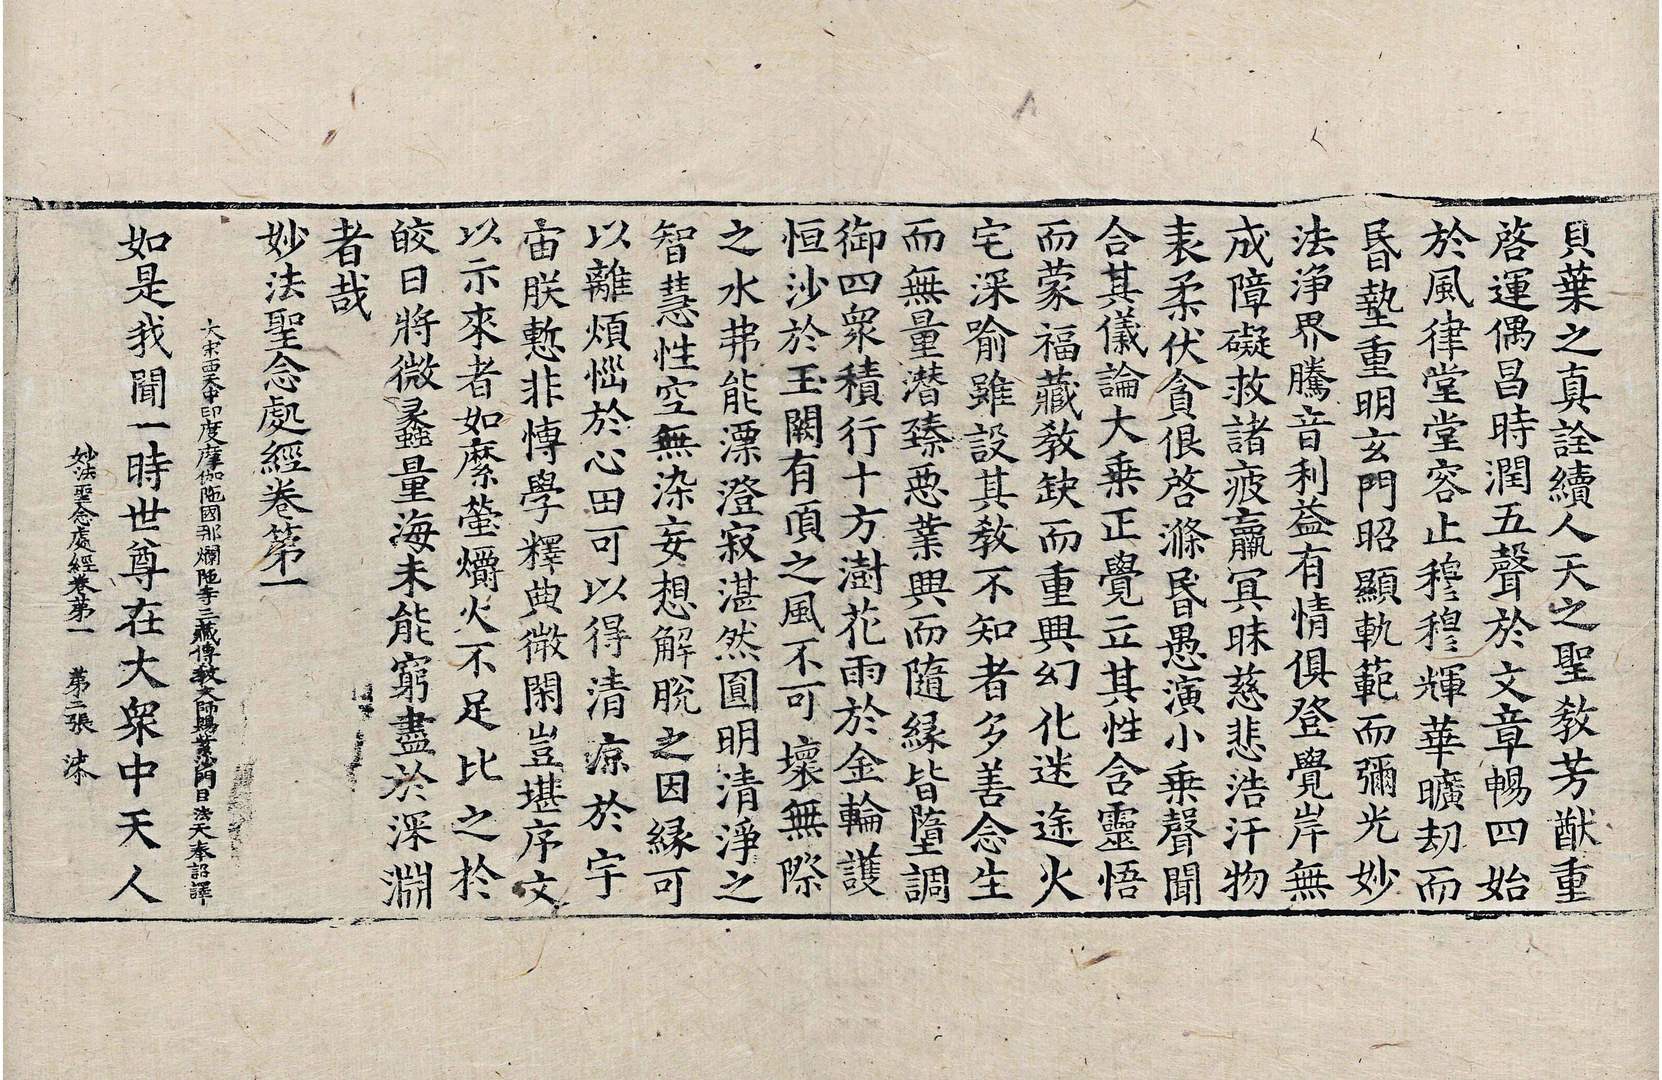 貝葉之真詮續人天之聖教芳猷重
啓運偶昌時潤五聲於文章暢四始
於風律堂堂容止穆穆輝華曠劫而
昬蟄重明玄門昭顯軌範而彌光妙
法淨界騰音利益有情俱登覺岸無
成障礙救諸疲羸冥昧慈悲浩汗物
表柔伏貪佷啓滌昬愚演小乘聲聞
合其儀論大乘正覺立其性含靈悟
而蒙福藏教缺而重興幻化迷途火
宅深喻雖設其教不知者多善念生
而無量潛臻惡業興而隨緣皆墮調
御四衆積行十方澍花雨於金輪護
恒沙於玉闕有頂之風不可壞無際
之水弗能漂澄寂湛然圓明清淨之
智慧性空無染妄想解脫之因緣可
以離煩惱於心田可以得清凉於宇
宙朕慙非博學釋典微閑豈堪序文
以示來者如縻螢爝火不足比之於
皎日將微蠡量海未能窮盡於深淵
者哉
妙法聖念處經卷第一
大宋西天中印度摩伽陁國那爛陁寺三藏傳教大師賜紫沙門臣法天奉詔譯
如是我聞一時世尊在大衆中天人
妙法聖念處經卷第一　第二張